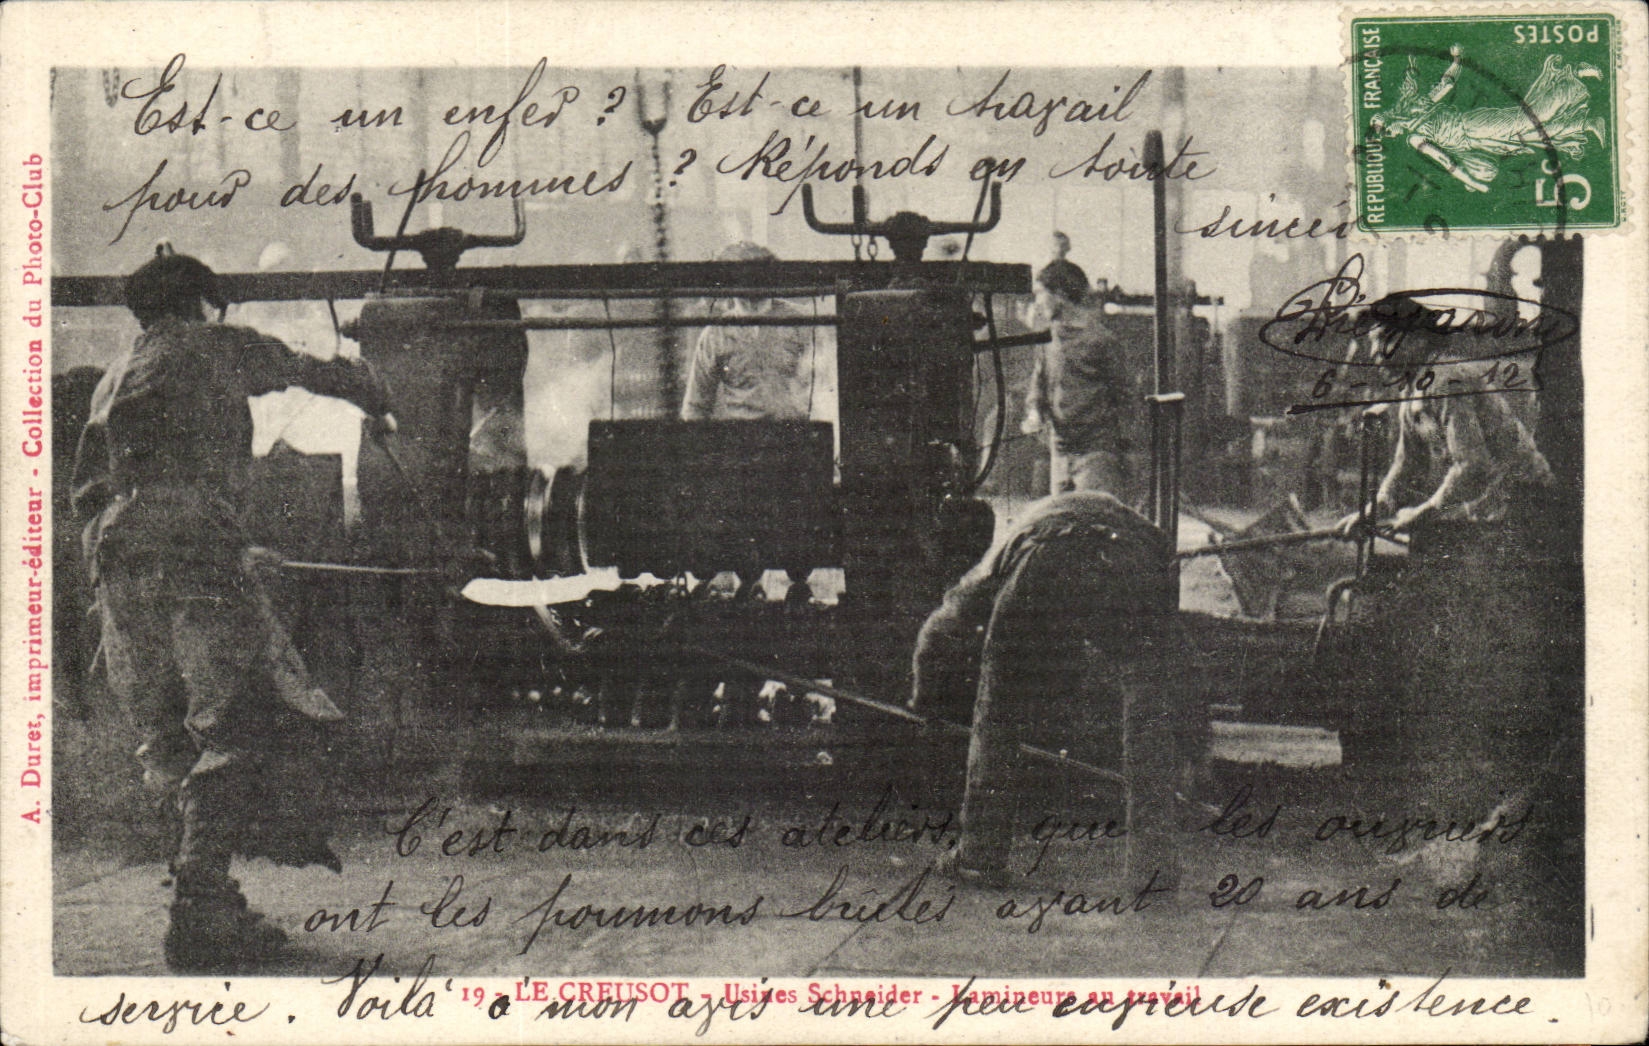 Est-ce un enfer ? Est-ce un travail
pour des hommes ? Réponds en toute
sincér
6-10-12
POSTES
RÉPUBLIQUE FRANÇAISE
5c
A. Duret, imprimeur-éditeur - Collection du Photo-Club
C'est dans ces ateliers, que les ouvriers
ont les poumons brûlés avant 20 ans de
service. Voilà à mon avis une peu envieuse existence.
19 - LE CREUSOT - Usines Schneider - Lamineurs au travail